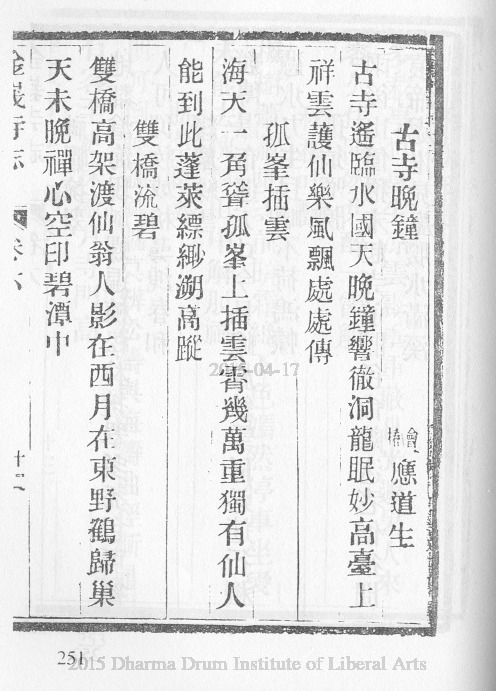 古寺晚鐘
會稽 應道生
古寺遙臨水國天晚鐘響徹洞龍眠妙高臺上
祥雲護仙樂風飄處處傳
孤峯插雲
海天一角聳孤峯上插雲霄幾萬重獨有仙人
能到此蓬萊縹緲溯高蹤
雙橋流碧
雙橋高架渡仙翁人影在西月在東野鶴歸巢
天未晚禪心空印碧潭中
寺志 卷六
十二
2015-04-17
251
2015 Dharma Drum Institute of Liberal Arts